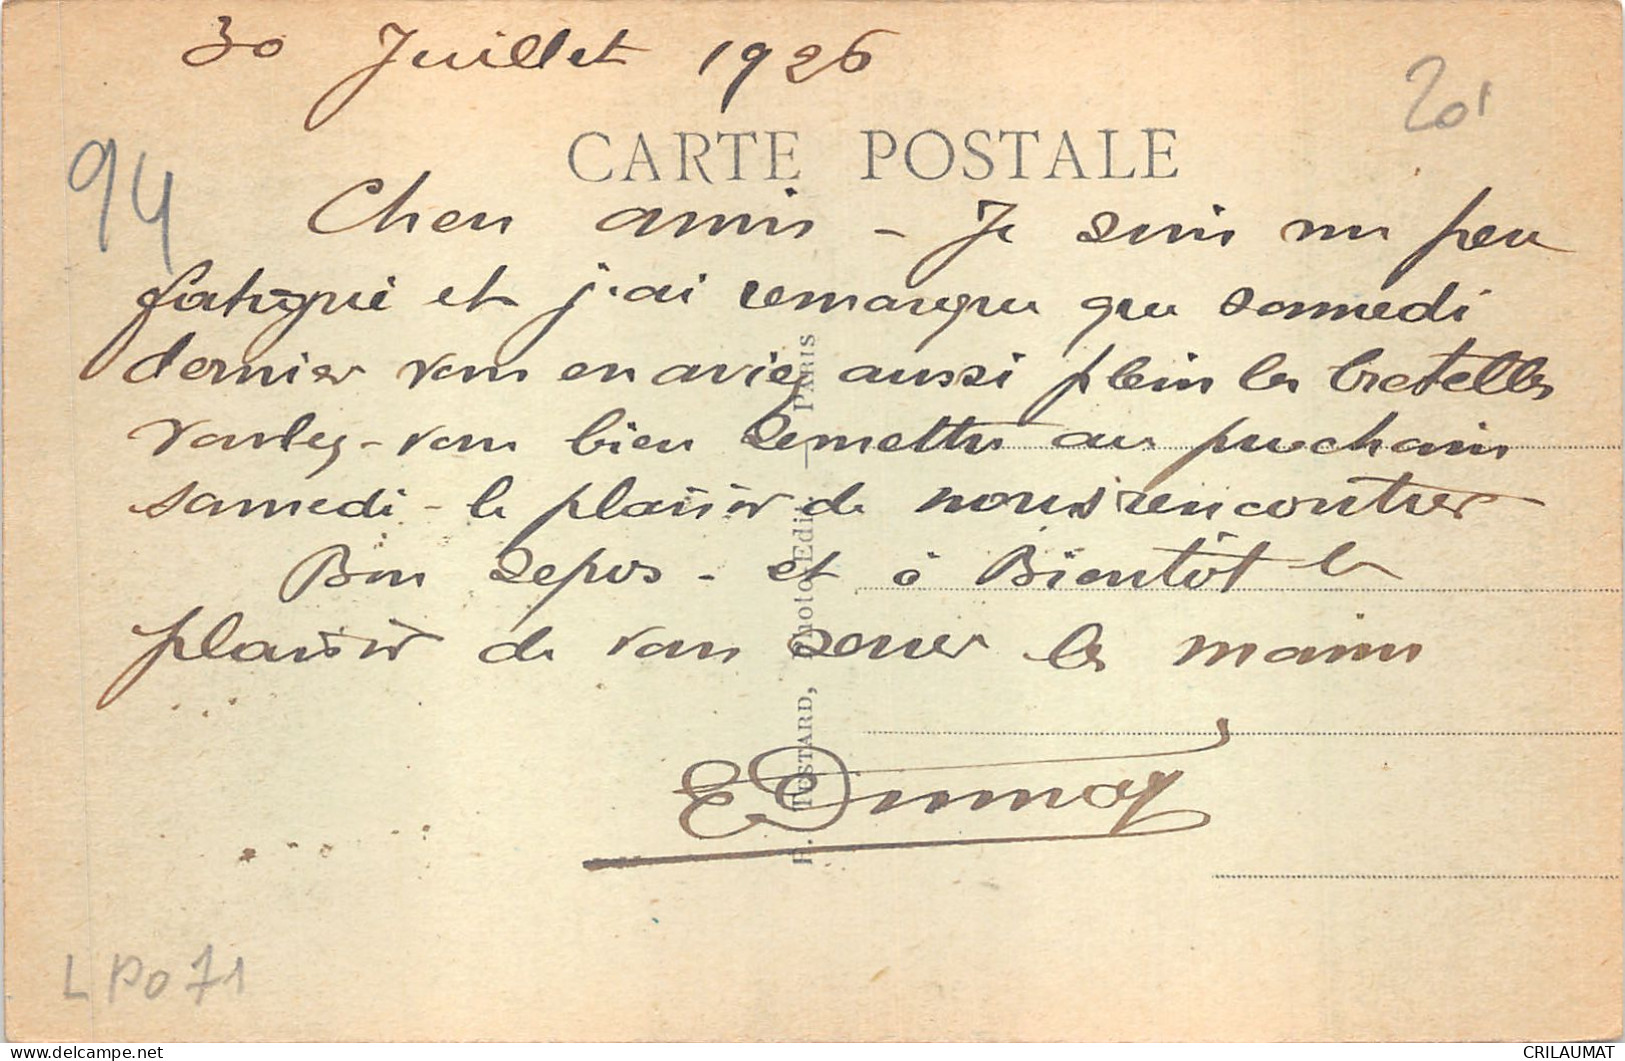 30 Juillet 1926
201
94
CARTE POSTALE
Chers amis - Je suis un peu
fatigué et j'ai remarqué que samedi
dernier vous en aviez aussi plein les bretelles
voulez-vous bien remettre au prochain
samedi - le plaisir de nous rencontrer
Bon repos - et à Bientôt le
plaisir de vous serrer les mains
TESTARD, Photo-Edit., PARIS
L P0 71
CRILAUMAT